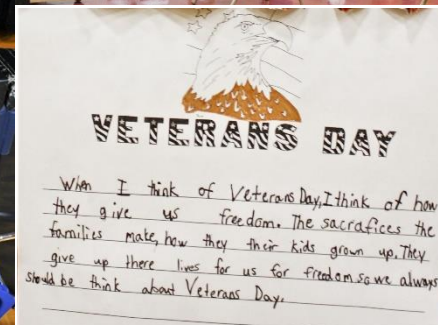 VETERANS DAY
When I think of Veterans Day, I think of how
they give us freedom. The sacrafices the
families make, how they their kids grown up. They
give up there lives for us for freedom so we always
should be think about Veterans Day.